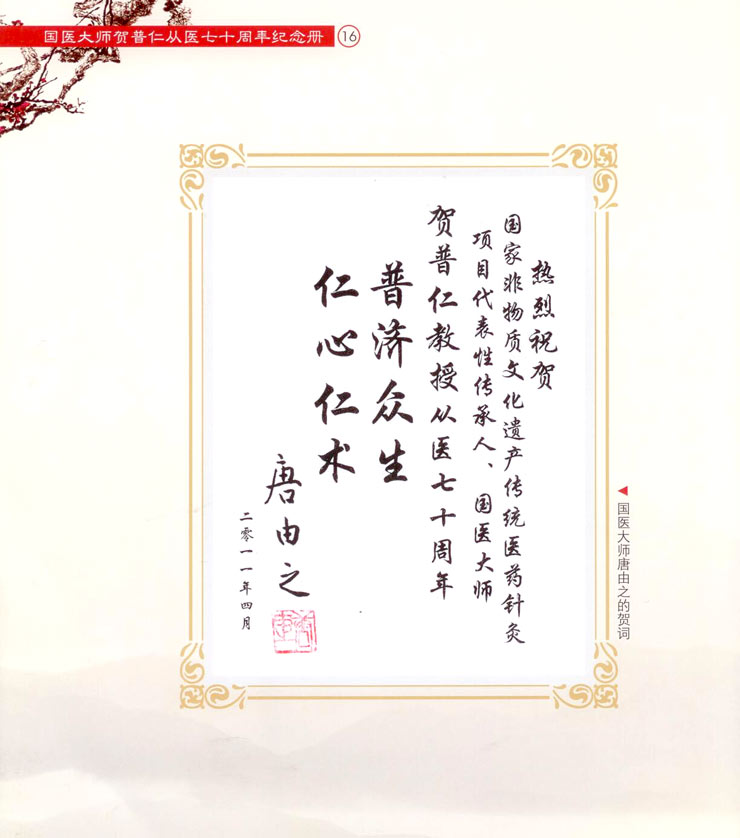 国医大师贺普仁从医七十周年纪念册
16
热烈祝贺
国家非物质文化遗产传统医药针灸
项目代表性传承人、国医大师
贺普仁教授从医七十周年
普济众生
仁心仁术
唐由之
二零一一年四月
◀国医大师唐由之的贺词